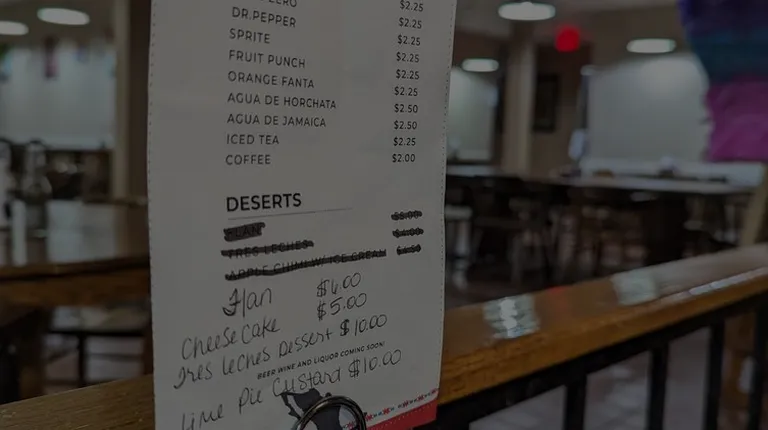 ZERO $2.25
DR.PEPPER $2.25
SPRITE $2.25
FRUIT PUNCH $2.25
ORANGE FANTA $2.25
AGUA DE HORCHATA $2.50
AGUA DE JAMAICA $2.50
ICED TEA $2.25
COFFEE $2.00
DESERTS
FLAN
TRES LECHES
APPLE CHIMI W/ ICE CREAM
Flan $6.00
Cheese Cake $5.00
Tres Leches Dessert $10.00
BEER WINE AND LIQUOR COMING SOON!
Lime Pie Custard $10.00